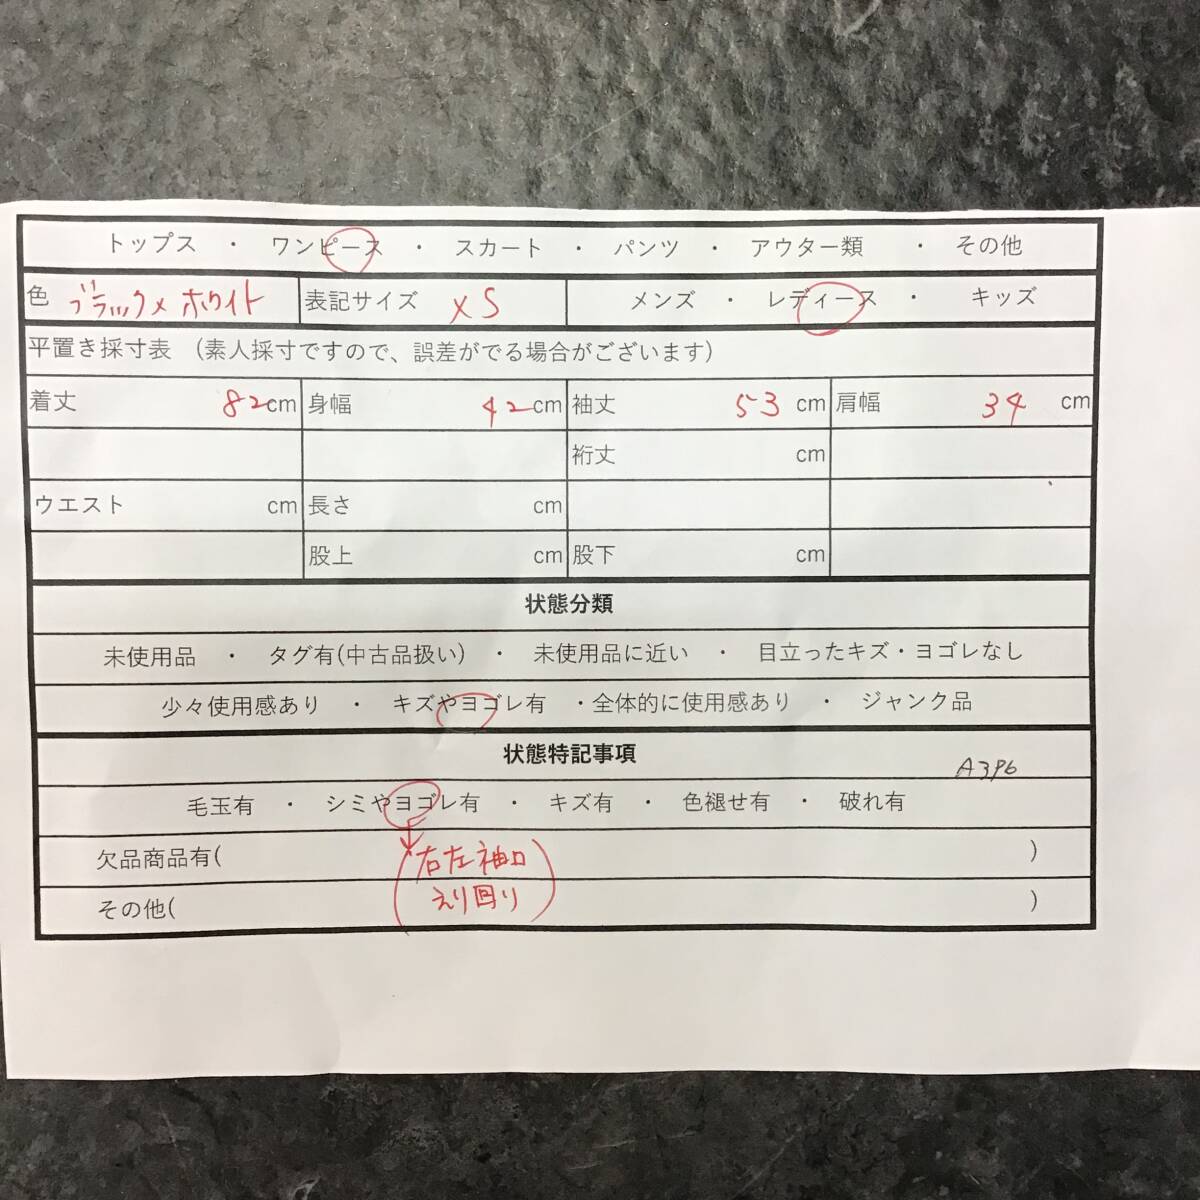 トップス ・ ワンピース ・ スカート ・ パンツ ・ アウター類 ・ その他
色 ブラック×ホワイト 表記サイズ XS メンズ ・ レディース ・ キッズ
平置き採寸表 (素人採寸ですので、誤差がでる場合がございます)
着丈 82cm 身幅 42cm 袖丈 53 cm 肩幅 34 cm
裄丈 cm
ウエスト cm 長さ cm
股上 cm 股下 cm
状態分類
未使用品 ・ タグ有(中古品扱い) ・ 未使用品に近い ・ 目立ったキズ・ヨゴレなし
少々使用感あり ・ キズやヨゴレ有 ・全体的に使用感あり ・ ジャンク品
状態特記事項
A396
毛玉有 ・ シミやヨゴレ有 ・ キズ有 ・ 色褪せ有 ・ 破れ有
欠品商品有( 右左袖口 )
その他( えり回り )